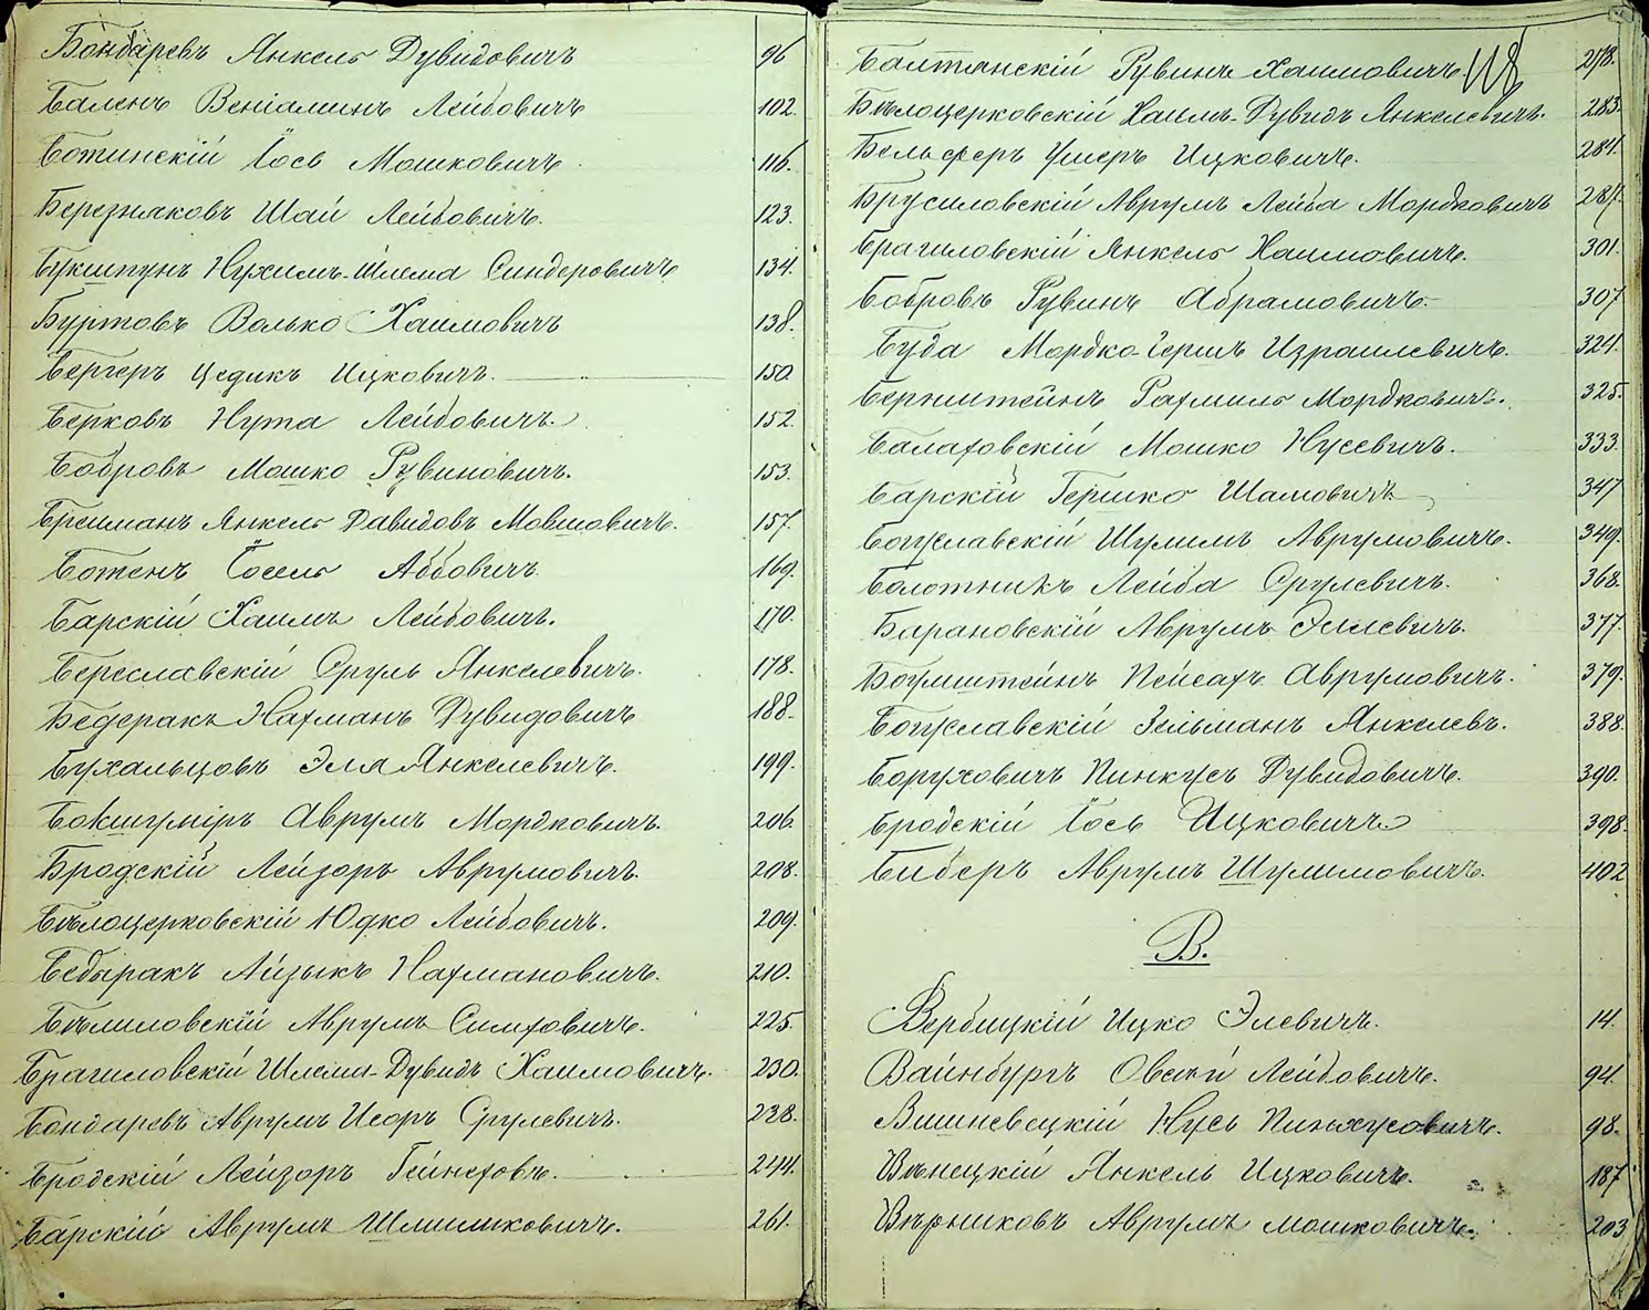 Бондаревъ Янкель Дувидовичъ 96
Баленъ Веніаминъ Лейбовичъ 102.
Ботинскій Іось Мошковичъ 116.
Березняковъ Шая Лейбовичъ. 123.
Букшпунъ Нухимъ-Шлема Сендеровичъ 134.
Буртовъ Волько Хаимовичъ 138.
Бергеръ Цедикъ Ицковичъ. 150.
Берковъ Нута Лейбовичъ. 152.
Бобровъ Мошко Рувиновичъ. 153.
Брейманъ Янкель Давидовъ Мовшовичъ. 157.
Ботенъ Іосель Аббовичъ 169.
Барскій Хаимъ Лейбовичъ. 170.
Береславскій Сруль Янкелевичъ. 178.
Бедеракъ Нахманъ Дувидовичъ 188.
Бухальцовъ Эля Янкелевичъ. 199.
Бокшумиръ Аврумъ Мордковичъ. 206.
Бродскій Лейзоръ Аврумовичъ. 208.
Бѣлоцерковскій Юдко Лейбовичъ. 209.
Бедыракъ Айзыкъ Нахмановичъ. 210.
Бѣлиловскій Аврумъ Симховичъ. 225.
Брагиловскій Шлема-Дувидъ Хаимовичъ. 230.
Бондаревъ Аврумъ Исоръ Срулевичъ. 238.
Бродскій Лейзоръ Гейнеховъ. 244.
Барскій Аврумъ Шлиомковичъ. 261.
Балтянскій Рувинъ Хаимовичъ 118 278.
Бѣлоцерковскій Хаимъ-Дувидъ Янкелевичъ. 283.
Бельферъ Ушеръ Ицковичъ. 284.
Брусиловскій Аврумъ Лейба Мордковичъ 287.
Брагиловскій Янкель Хаимовичъ. 301.
Бобровъ Рувинъ Абрамовичъ. 307
Буда Мордко-Гершъ Израилевичъ. 324.
Бернштейнъ Рахмиль Мордковичъ. 325.
Балаховскій Мошко Нусевичъ. 333.
Барскій Гершко Шамовичъ 347
Богуславскій Шулимъ Аврумовичъ. 349.
Болотникъ Лейба Срулевичъ. 368.
Барановскій Аврумъ Эллевичъ. 377.
Боумштейнъ Пейсахъ Аврумовичъ. 379.
Богуславскій Зельманъ Янкелевъ. 388.
Боруховичъ Пинкусъ Дувидовичъ. 390.
Бродскій Іось Ицковичъ 398.
Биберъ Аврумъ Шулимовичъ. 402
В.
Вербицкій Ицко Элевичъ. 14.
Вайнбургъ Овсей Лейбовичъ. 94.
Вишневецкій Нусь Пинхусовичъ. 98.
Вѣнецкій Янкель Ицковичъ. 187
Вѣрниковъ Аврумъ Мошковичъ. 203